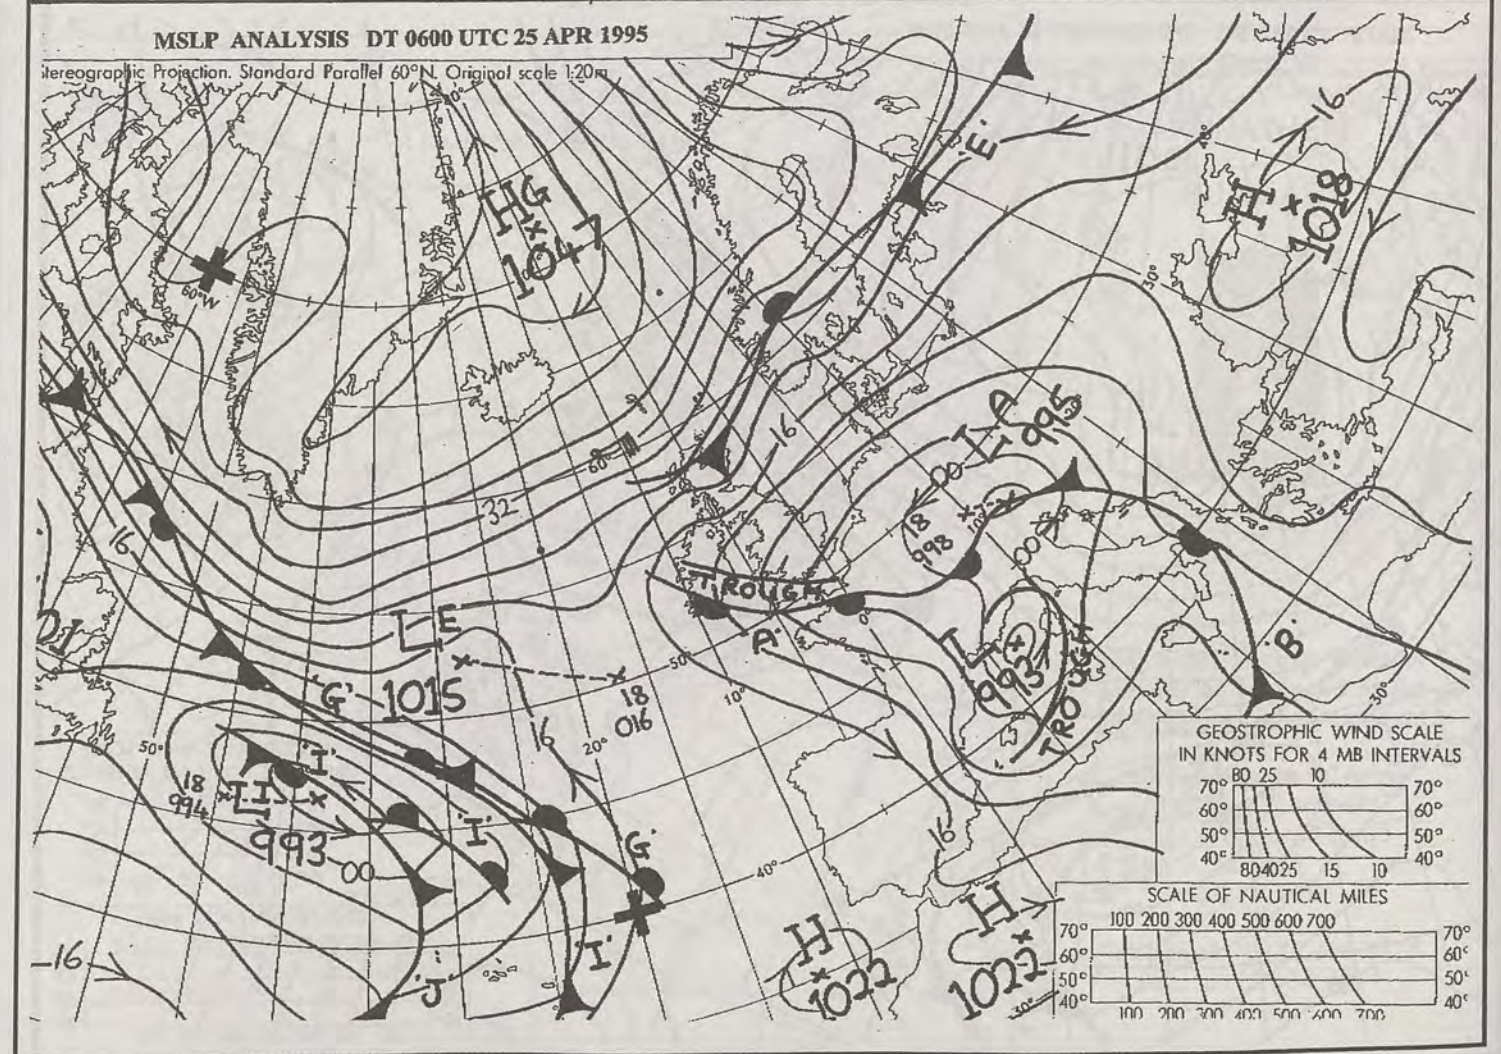 MSLP ANALYSIS DT 0600 UTC 25 APR 1995
Stereographic Projection. Standard Parallel 60°N. Original scale 1:20m
HG
1047
60°W
'E'
16
H
1018
40°
30°
32
60°
16
16
L A
995
00
18
998
00
TROUGH
'A'
0°
L
993
TROUGH
'B'
30°
LE
1015
18
016
50°
10°
20°
16
'G'
50°
'I'
18
994
LI
993
00
'I'
'G'
'I'
'J'
16
40°
16
H
1022
H
1022
30°
GEOSTROPHIC WIND SCALE
IN KNOTS FOR 4 MB INTERVALS
80 25 10
70° 70°
60° 60°
50° 50°
40° 40°
80 40 25 15 10
SCALE OF NAUTICAL MILES
100 200 300 400 500 600 700
70° 70°
60° 60°
50° 50°
40° 40°
100 200 300 400 500 600 700